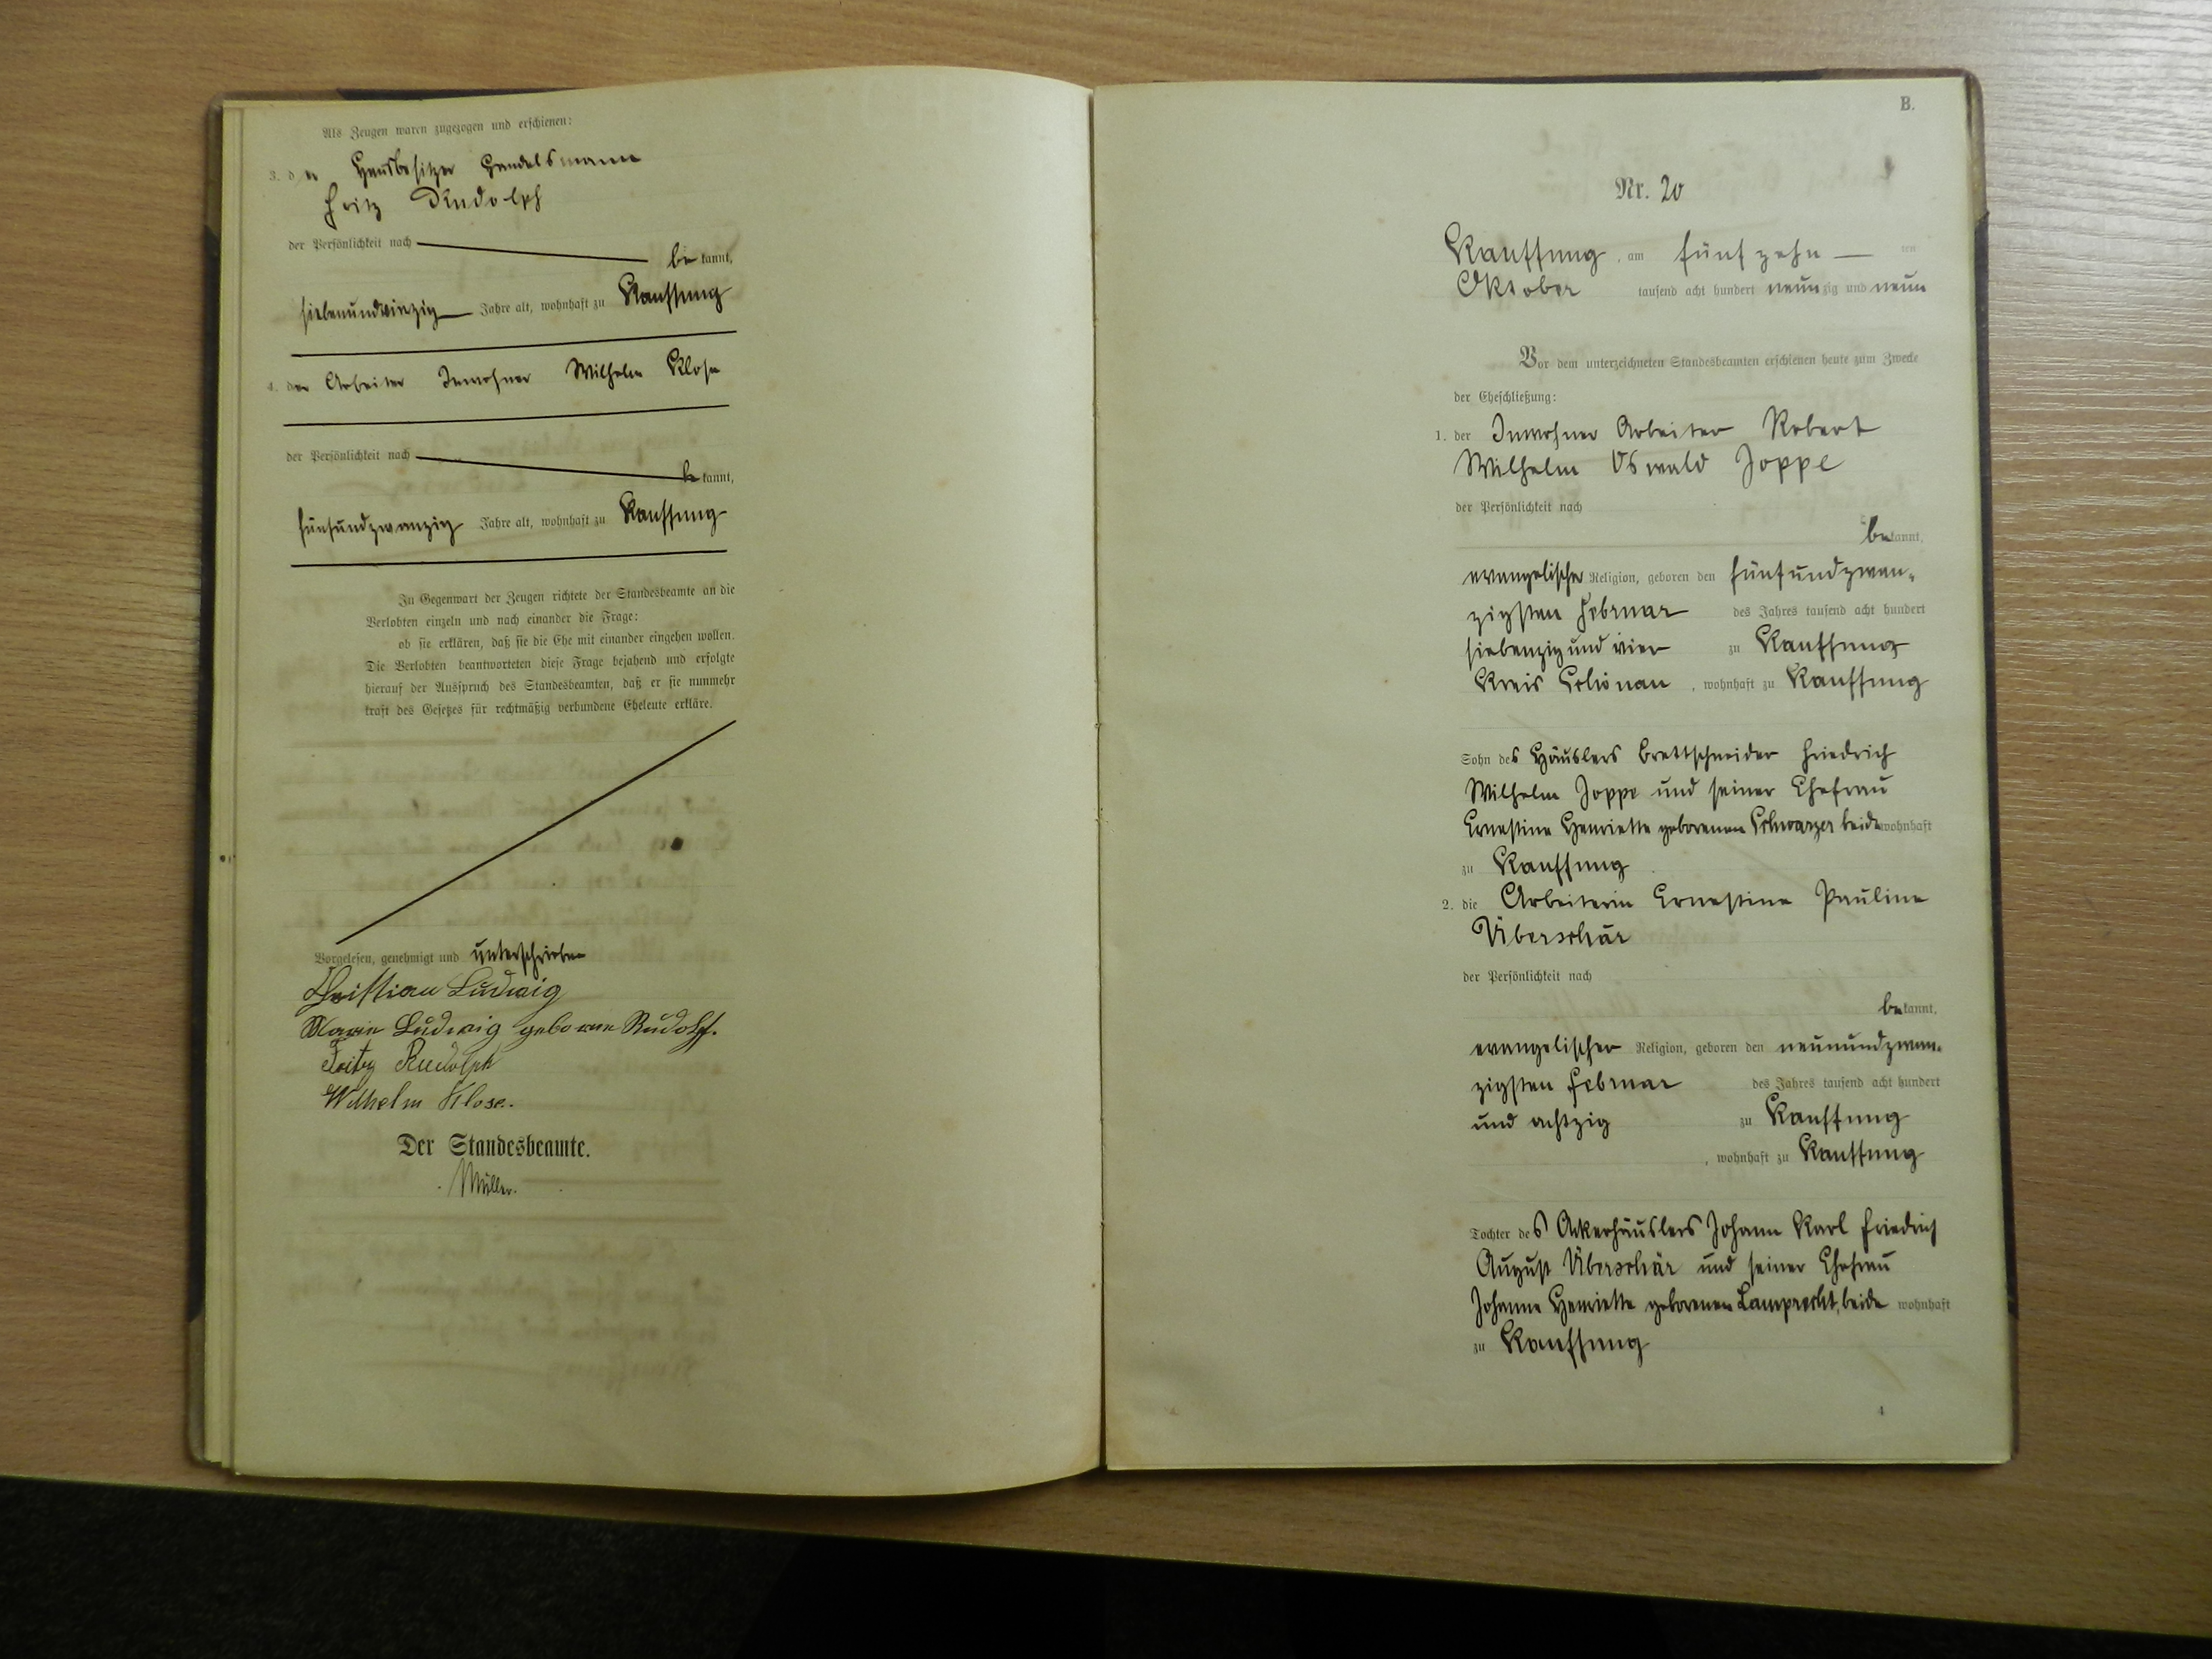 Als Zeugen waren zugezogen und erschienen:
3. der Hausbesitzer Handelsmann
Fritz Rudolph
der Persönlichkeit nach
be kannt,
siebenundvierzig Jahre alt, wohnhaft zu Kauffung
4. der Arbeiter Inwohner Wilhelm Klose
der Persönlichkeit nach
be kannt,
fünfundzwanzig Jahre alt, wohnhaft zu Kauffung
In Gegenwart der Zeugen richtete der Standesbeamte an die
Verlobten einzeln und nach einander die Frage:
ob sie erklären, daß sie die Ehe mit einander eingehen wollen.
Die Verlobten beantworteten diese Frage bejahend und erfolgte
hierauf der Ausspruch des Standesbeamten, daß er sie nunmehr
kraft des Gesetzes für rechtmäßig verbundene Eheleute erkläre.
Vorgelesen, genehmigt und unterschrieben
Christian Ludwig
Marie Ludwig geborene Rudolf.
Fritz Rudolph
Wilhelm Klose.
Der Standesbeamte.
Müller.
B.
Nr. 20
Kauffung, am fünfzehn ten
Oktober tausend acht hundert neunzig und neun
Vor dem unterzeichneten Standesbeamten erschienen heute zum Zwecke
der Eheschließung:
1. der Inwohner Arbeiter Robert
Wilhelm Oswald Joppe
der Persönlichkeit nach
bekannt,
evangelischer Religion, geboren den fünfundzwan-
zigsten Februar des Jahres tausend acht hundert
siebenzig und vier zu Kauffung
Kreis Schönau, wohnhaft zu Kauffung
Sohn des Häuslers Brettschneider Friedrich
Wilhelm Joppe und seiner Ehefrau
Ernestine Henriette geborenen Schwarzer beide wohnhaft
zu Kauffung
2. die Arbeiterin Ernestine Pauline
Überschär
der Persönlichkeit nach
bekannt,
evangelischer Religion, geboren den neunundzwan-
zigsten Februar des Jahres tausend acht hundert
und achtzig zu Kauffung
, wohnhaft zu Kauffung
Tochter des Ackerhäuslers Johann Karl Friedrich
August Überschär und seiner Ehefrau
Johanne Henriette geborenen Lamprecht, beide wohnhaft
zu Kauffung
4